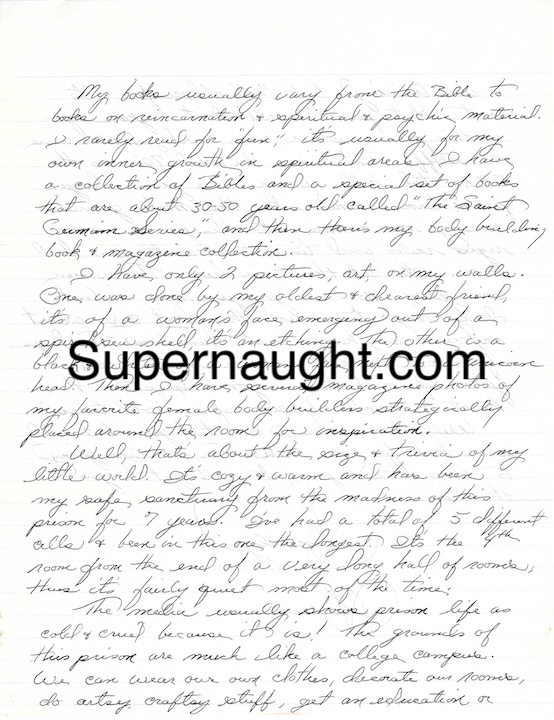 My books usually vary from the Bible to
books on reincarnation & spiritual & psychic material.
I rarely read for "fun," it's usually for my
own inner growth in spiritual areas. I have
a collection of Bibles and a special set of books
that are about 30-50 years old called "The Saint
Germain series," and then there's my body building
book & magazine collection.
I have only 2 pictures, art, on my walls.
One was done by my oldest & dearest friend,
it's of a woman's face emerging out of a
sea shell, it's an etching. The other is a
Supernaught.com
black &
head. Then I have several magazine photos of
my favorite female body builders strategically
placed around the room for inspiration.
Well, that's about the size & trivia of my
little world. It's cozy & warm and has been
my safe sanctuary from the madness of this
prison for 7 years. I've had a total of 5 different
cells & been in this one the longest. It's the 4th
room from the end of a very long hall of rooms,
thus it's fairly quiet most of the time.
The media usually shows prison life as
cold & cruel because it is! The grounds of
this prison are much like a college campus.
We can wear our own clothes, decorate our rooms,
do artsy craftsy stuff, get an education or